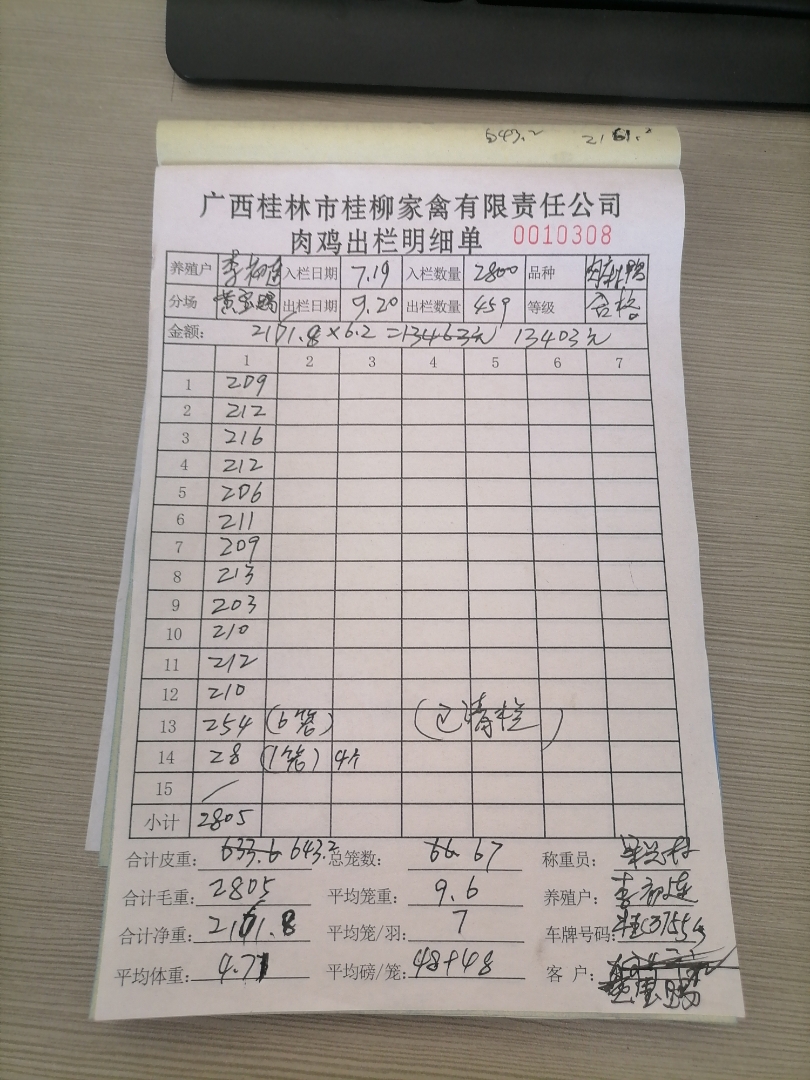 643.2 2161.2
广西桂林市桂柳家禽有限责任公司
肉鸡出栏明细单 0010308
养殖户 李 入栏日期 7.19 入栏数量 2800 品种 鸭
分场 黄 鸭 出栏日期 9.20 出栏数量 459 等级 合格
金额: ×6.2 =13463元 13403元
1 2 3 4 5 6 7
1 209
2 212
3 216
4 212
5 206
6 211
7 209
8 213
9 203
10 210
11 212
12 210
13 254 (6笼) (已清栏)
14 28 (1笼) 4个
15 /
小计 2805
合计皮重: 633.6 643.2 总笼数: 66 67 称重员:
合计毛重: 2805 平均笼重: 9.6 养殖户: 李
合计净重: 平均笼/羽: 7 车牌号码: 桂C3755
平均体重: 4.71 平均磅/笼: 48+48 客 户: